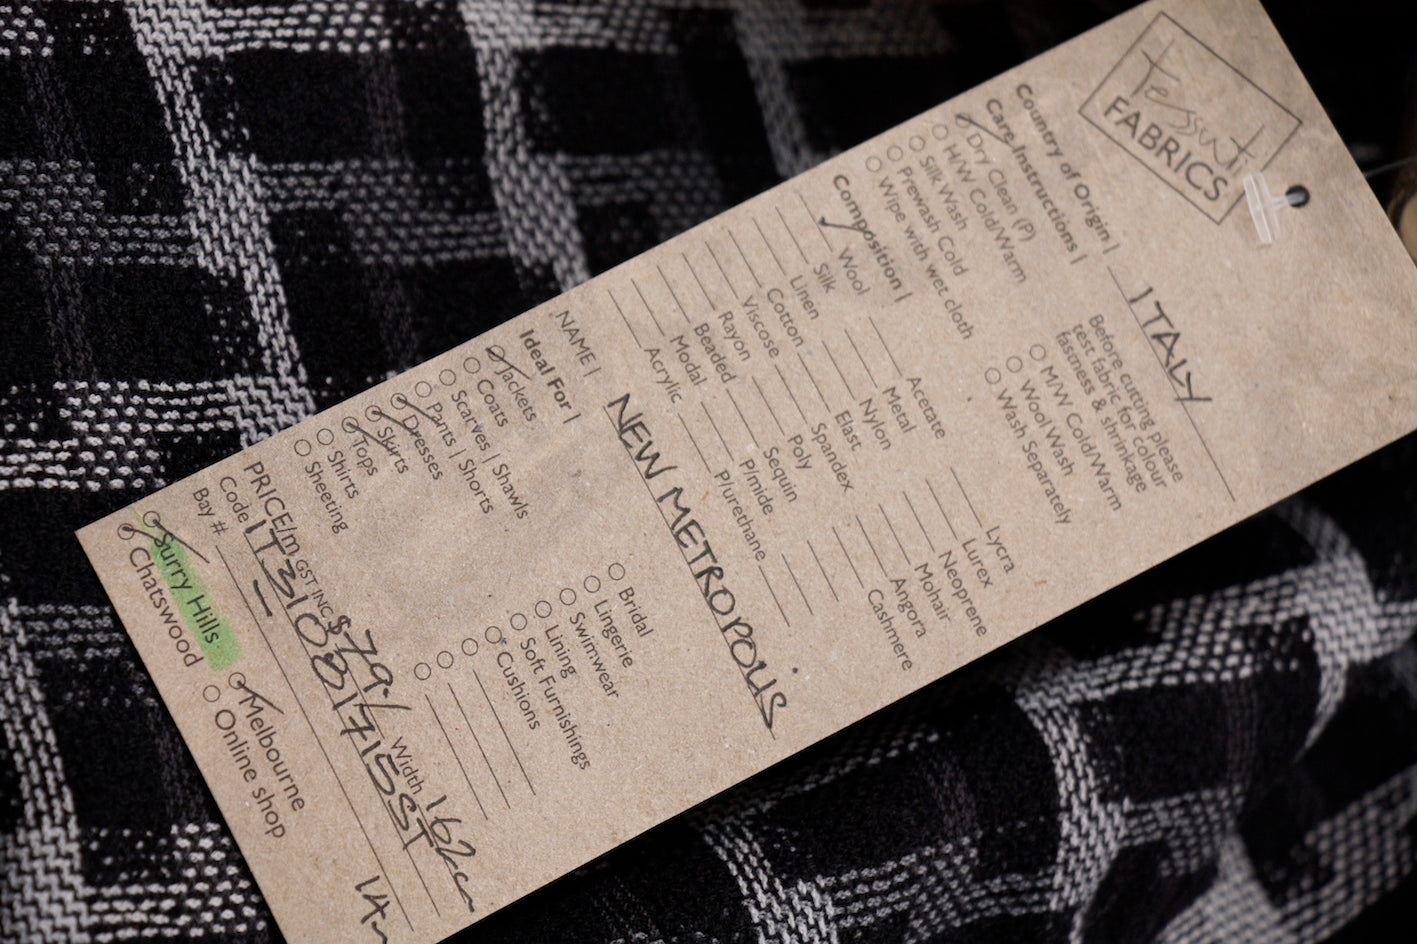 tessuti
FABRICS
Country of Origin | ITALY
Care Instructions |
Before cutting please
test fabric for colour
fastness & shrinkage
Dry Clean (P)
H/W Cold/Warm
Silk Wash
Prewash Cold
Wipe with wet cloth
M/W Cold/Warm
Wool Wash
Wash Separately
Composition |
Wool Acetate Lycra
Silk Metal Lurex
Linen Nylon Neoprene
Cotton Elast Mohair
Viscose Spandex Angora
Rayon Poly Cashmere
Beaded Sequin
Modal P/mide
Acrylic P/urethane
NAME | NEW METROPOLIS
Ideal For |
Jackets Bridal
Coats Lingerie
Scarves | Shawls Swimwear
Pants | Shorts Lining
Dresses Soft Furnishings
Skirts Cushions
Tops
Shirts
Sheeting
PRICE/m GST INC $79./ Width 162cm
Code IT31081715SST
Bay # 14m
Surry Hills Melbourne
Chatswood Online shop